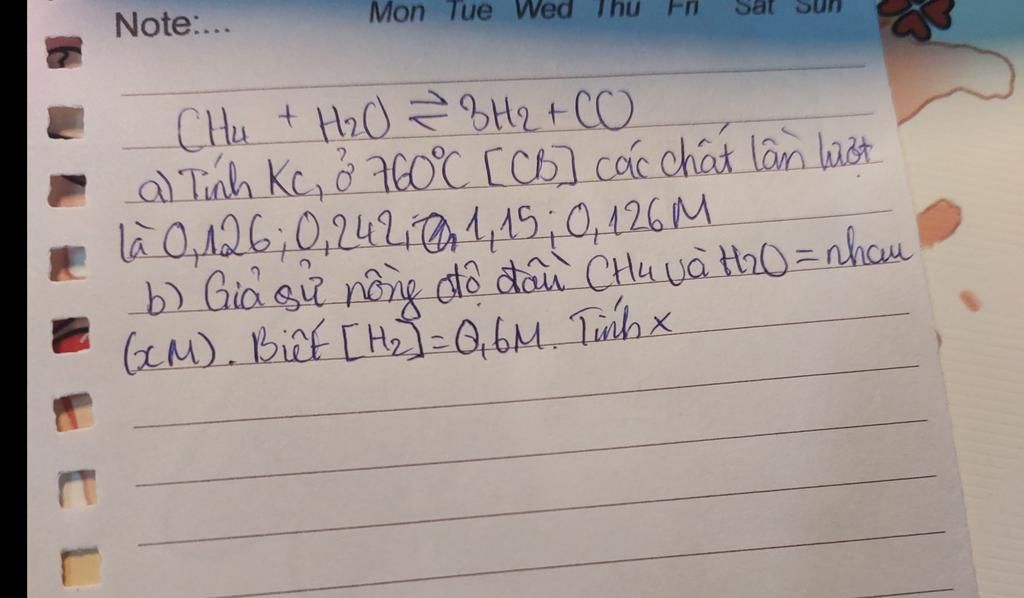 Note:....
Mon Tue Wed Thu Fri Sat Sun
CH4 + H2O ⇌ 3H2 + CO
a) Tính Kc, ở 760°C [CB] các chất lần lượt
là 0,126; 0,242; 1,15; 0,126M
b) Giả sử nồng độ đầu CH4 và H2O = nhau
(xM). Biết [H2] = 0,6M. Tính x